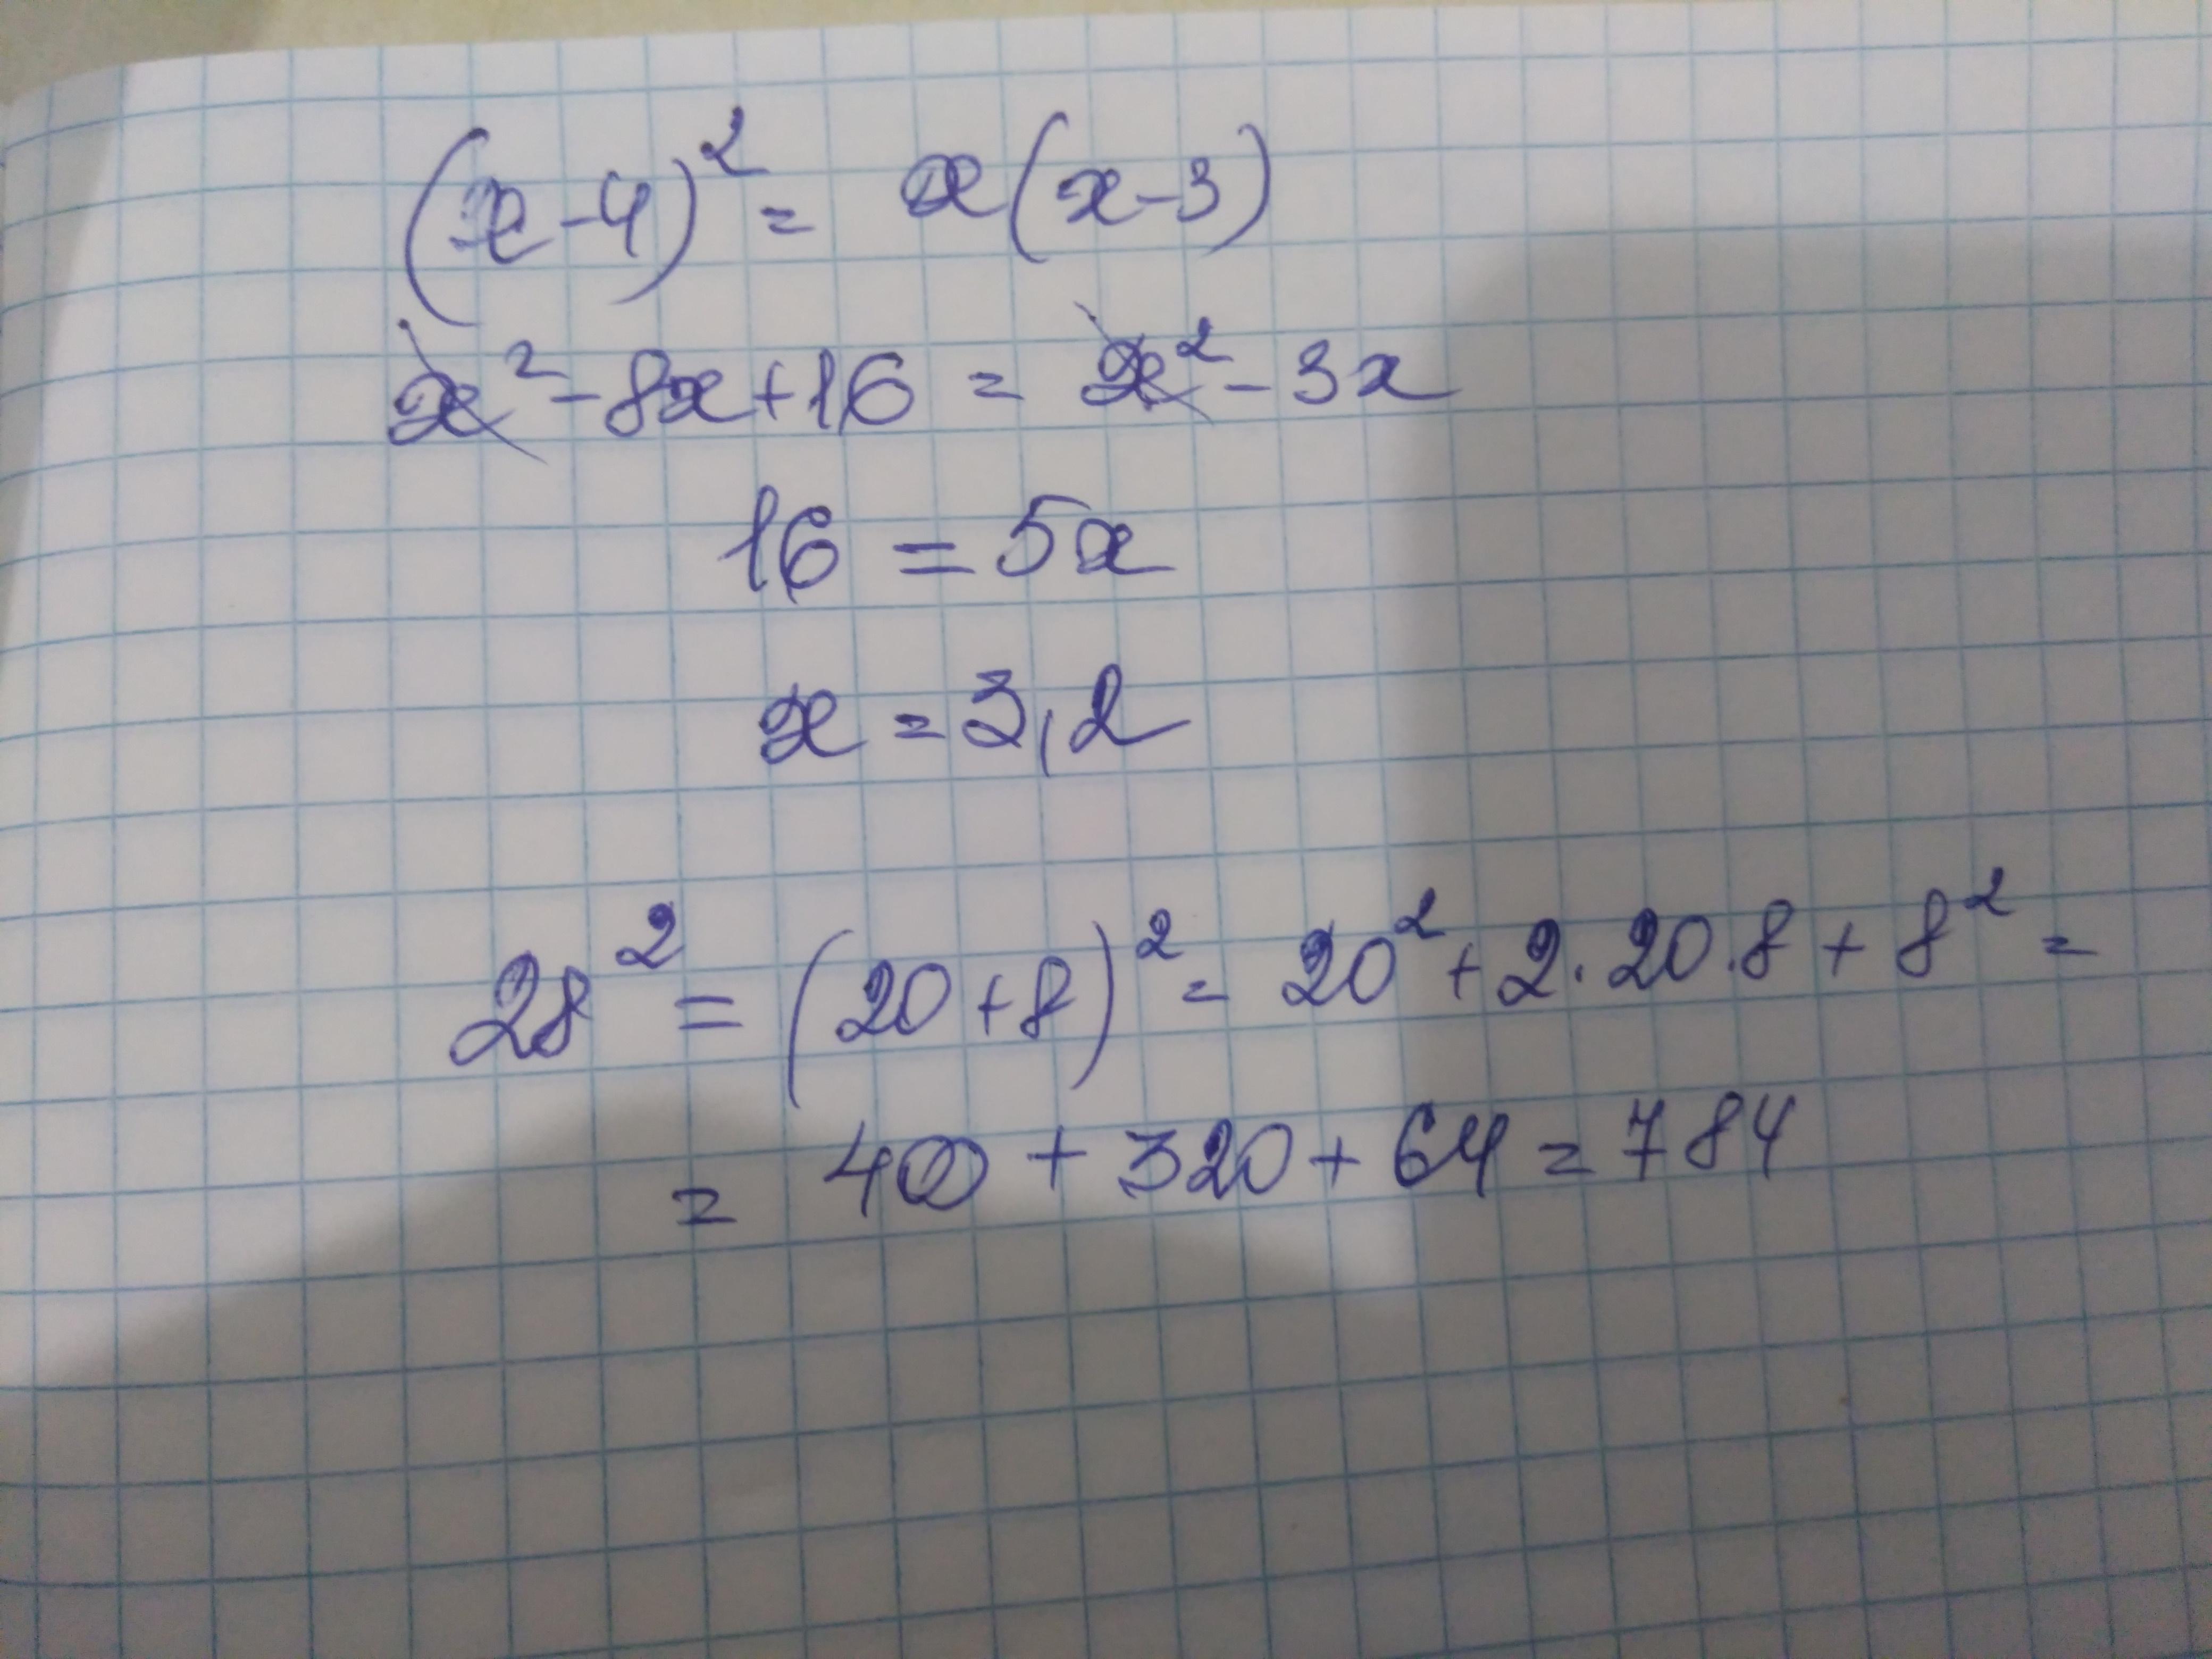 (x-4)² = x(x-3)
x² - 8x + 16 = x² - 3x
16 = 5x
x = 3,2
28² = (20+8)² = 20² + 2·20·8 + 8² =
= 400 + 320 + 64 = 784